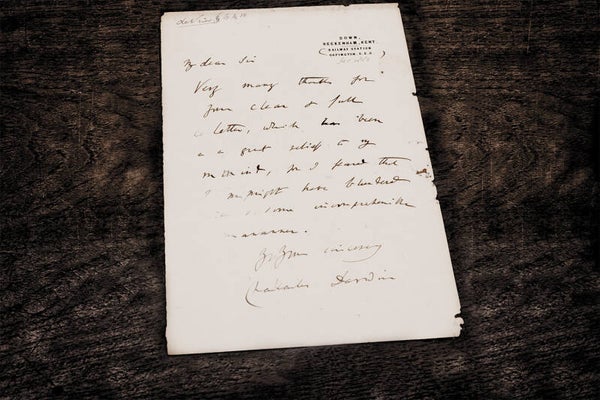 DOWN,
BECKENHAM, KENT.
RAILWAY STATION
ORPINGTON. S.E.R.
My dear Sir
Very many thanks for
your clear & full
letter, which has been
a great relief to my
mind, for I feared that
I might have blundered
in some incomprehensible
manner.
Yours sincerely
Charles Darwin